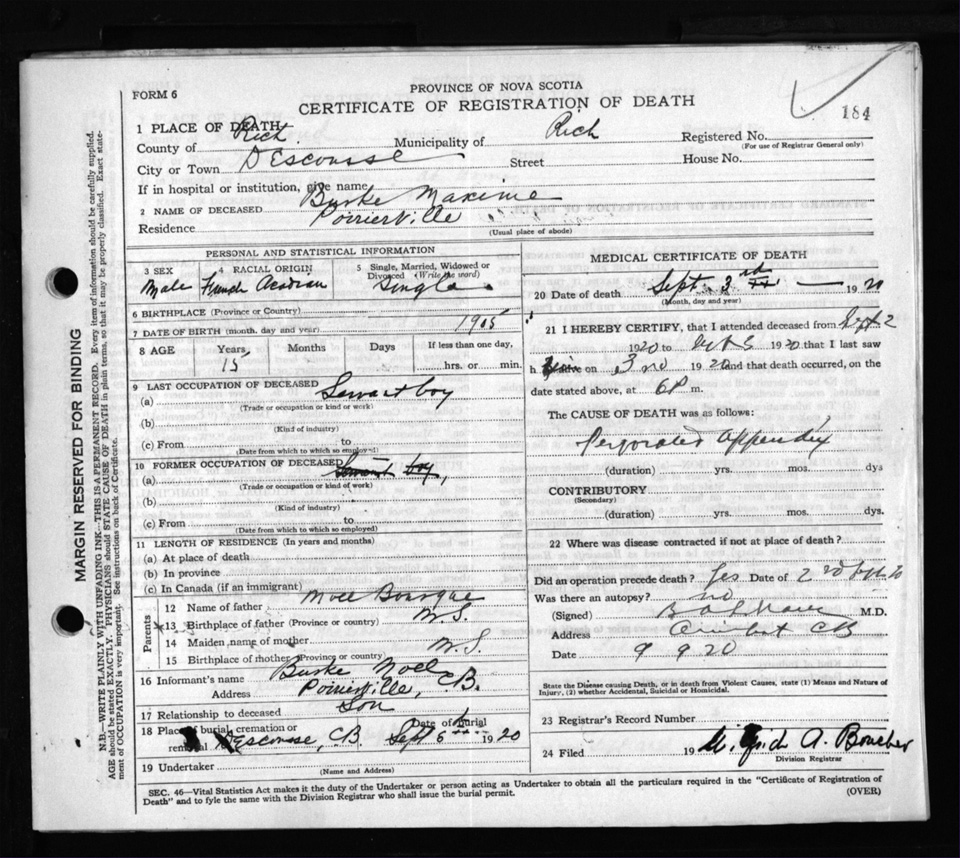 PROVINCE OF NOVA SCOTIA
FORM 6
CERTIFICATE OF REGISTRATION OF DEATH
184
MARGIN RESERVED FOR BINDING
N.B.—WRITE PLAINLY WITH UNFADING INK—THIS IS A PERMANENT RECORD. Every item of information should be carefully supplied.
AGE should be stated EXACTLY. PHYSICIANS should STATE CAUSE OF DEATH in plain terms, so that it may be properly classified. Exact statement of OCCUPATION is very important. See instructions on back of Certificate.
1 PLACE OF DEATH
County of Rich. Municipality of Rich Registered No.
(For use of Registrar General only)
City or Town D'Escousse Street House No.
If in hospital or institution, give name
2 NAME OF DECEASED Burke Maxime
Residence Poirierville
(Usual place of abode)
PERSONAL AND STATISTICAL INFORMATION
3 SEX Male
4 RACIAL ORIGIN French Acadian
5 Single, Married, Widowed or Divorced (Write the word) Single
6 BIRTHPLACE (Province or Country)
7 DATE OF BIRTH (month, day and year) 1905
8 AGE Years 15 Months Days If less than one day, hrs. or min.
9 LAST OCCUPATION OF DECEASED
(a) Servant boy
(Trade or occupation or kind or work)
(b)
(Kind of industry)
(c) From to
(Date from which to which so employed)
10 FORMER OCCUPATION OF DECEASED
(a) Servant boy,
(Trade or occupation or kind of work)
(b)
(Kind of industry)
(c) From to
(Date from which to which so employed)
11 LENGTH OF RESIDENCE (In years and months)
(a) At place of death
(b) In province
(c) In Canada (if an immigrant)
Parents
12 Name of father Noel Bourque
13 Birthplace of father (Province or country) N.S.
14 Maiden name of mother
15 Birthplace of mother (Province or country) N.S.
16 Informant's name Burke Noel
Address Poirierville, C.B.
17 Relationship to deceased Son
18 Place of burial, cremation or removal Descousse, C.B. Date of burial Sept 6th 1920
19 Undertaker
(Name and Address)
MEDICAL CERTIFICATE OF DEATH
20 Date of death Sept. 3rd 1920
(Month, day and year)
21 I HEREBY CERTIFY, that I attended deceased from Sept 2
1920 to Sept 3 1920 that I last saw
h im alive on 3rd 1920 and that death occurred, on the
date stated above, at 6 P m.
The CAUSE OF DEATH was as follows:
Perforated appendix
(duration) yrs. mos. dys
CONTRIBUTORY
(Secondary)
(duration) yrs. mos. dys.
22 Where was disease contracted if not at place of death?
Did an operation precede death? Yes Date of 2nd Sept 20
Was there an autopsy? no
(Signed) M.D.
Address Arichat CB
Date 9 9 20
State the Disease causing Death, or in death from Violent Causes, state (1) Means and Nature of Injury, (2) whether Accidental, Suicidal or Homicidal.
23 Registrar's Record Number
24 Filed 19 A. Boucher
Division Registrar
SEC. 46—Vital Statistics Act makes it the duty of the Undertaker or person acting as Undertaker to obtain all the particulars required in the "Certificate of Registration of
Death" and to fyle the same with the Division Registrar who shall issue the burial permit.
(OVER)